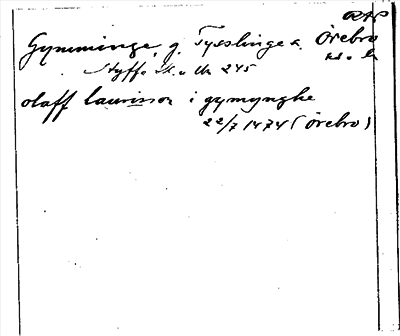 RAP
Gymminge, g. Tysslinge s. Örebro
Styffe Sk. u Un 245
olaff laurisson i gymyngke
22/7 1474 (Örebro)